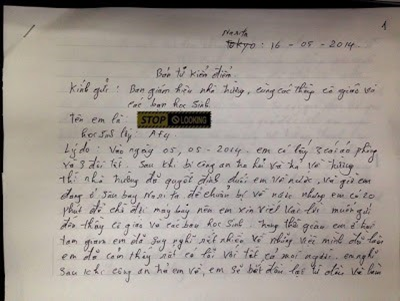 1
Narita
Tokyo : 16 - 05 - 2014.
Bản tự kiểm điểm.
Kính gửi : Ban giám hiệu nhà trường, cùng các thầy cô giáo và
các bạn học sinh
Tên em là STOP LOOKING
học sinh lớp A+4
Lý do : Vào ngày 05, 05 - 2014. em có lấy 3 cái áo phông
và 3 đôi tất. Sau khi bị công an họ hỏi và thả về trường
thì nhà trường đã quyết định đuổi em về nước, và giờ em
đang ở sân bay Narita để chuẩn bị về nước, nhưng em có 20
phút để chờ đợi máy bay nên em xin viết vài lời muốn gửi
đến thầy cô giáo và các bạn học sinh. Trong thời gian em ở trại
tạm giam em đã suy nghĩ rất nhiều về những việc mình đã làm
em đã cảm thấy rất có lỗi với tất cả mọi người. em nghĩ
sau khi công an thả em về, em sẽ bắt đầu lại từ đầu và làm